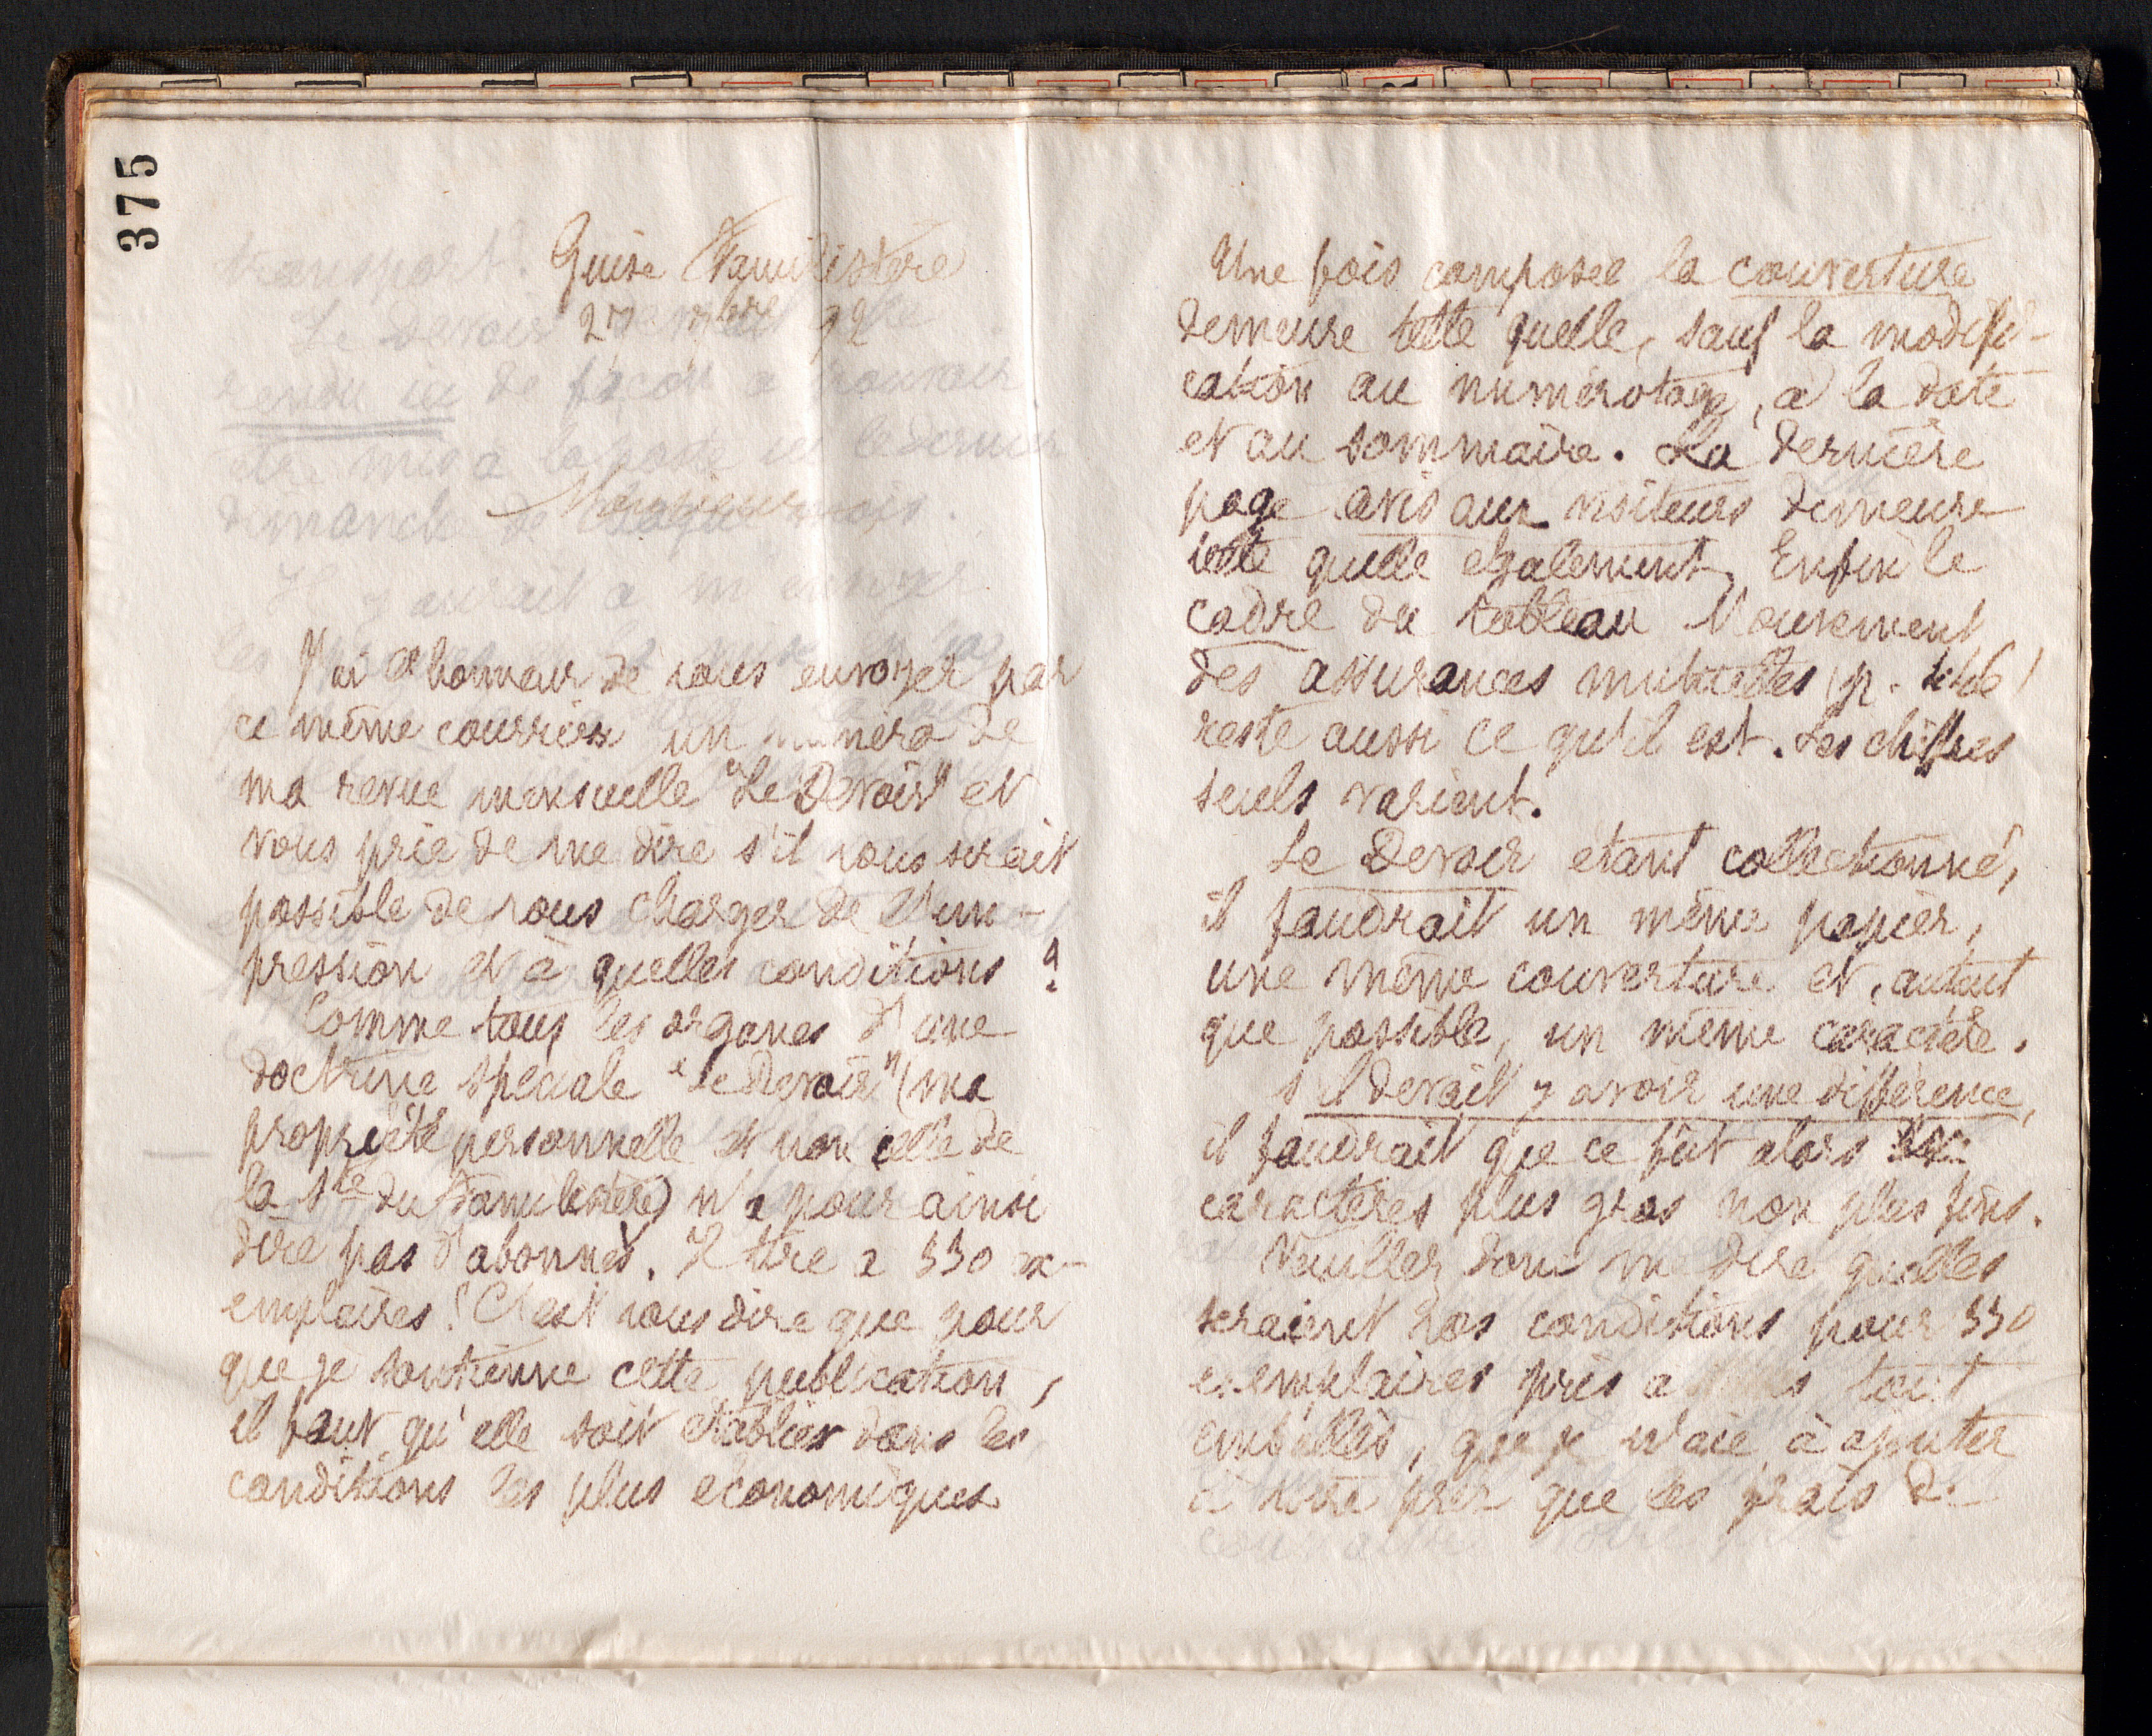 375
Guise Familistère
27 7bre 92
Monsieur
J'ai l'honneur de vous envoyer par
ce même courrier un numéro de
ma revue mensuelle "Le Devoir" et
vous prie de me dire s'il vous serait
possible de vous charger de l'im-
pression et à quelles conditions ?
Comme tous les organes d'une
doctrine spéciale "Le Devoir" (ma
propriété personnelle et non celle de
la Sté du Familistère) n'a pour ainsi
dire pas d'abonnés. Il tire à 330 ex-
emplaires ! C'est vous dire que pour
que je soutienne cette publication,
il faut qu'elle soit établie dans les
conditions les plus économiques
Une fois composée la couverture
demeure telle quelle, sauf la modifi-
cation au numérotage, à la date
et au sommaire. La dernière
page avis aux visiteurs demeure
telle quelle également. Enfin le
cadre du tableau Mouvement
des assurances mutuelles (p.
reste aussi ce qu'il est. Les chiffres
seuls varient.
Le Devoir étant collectionné,
il faudrait un même papier,
une même couverture et, autant
que possible, un même caractère.
S'il devait y avoir une différence,
il faudrait que ce fût alors
caractères plus gros non plus fins.
Veuillez donc me dire quelles
seraient vos conditions pour 330
exemplaires pris a tout
emballés, que je n'aie à ajouter
à votre prix que les frais de